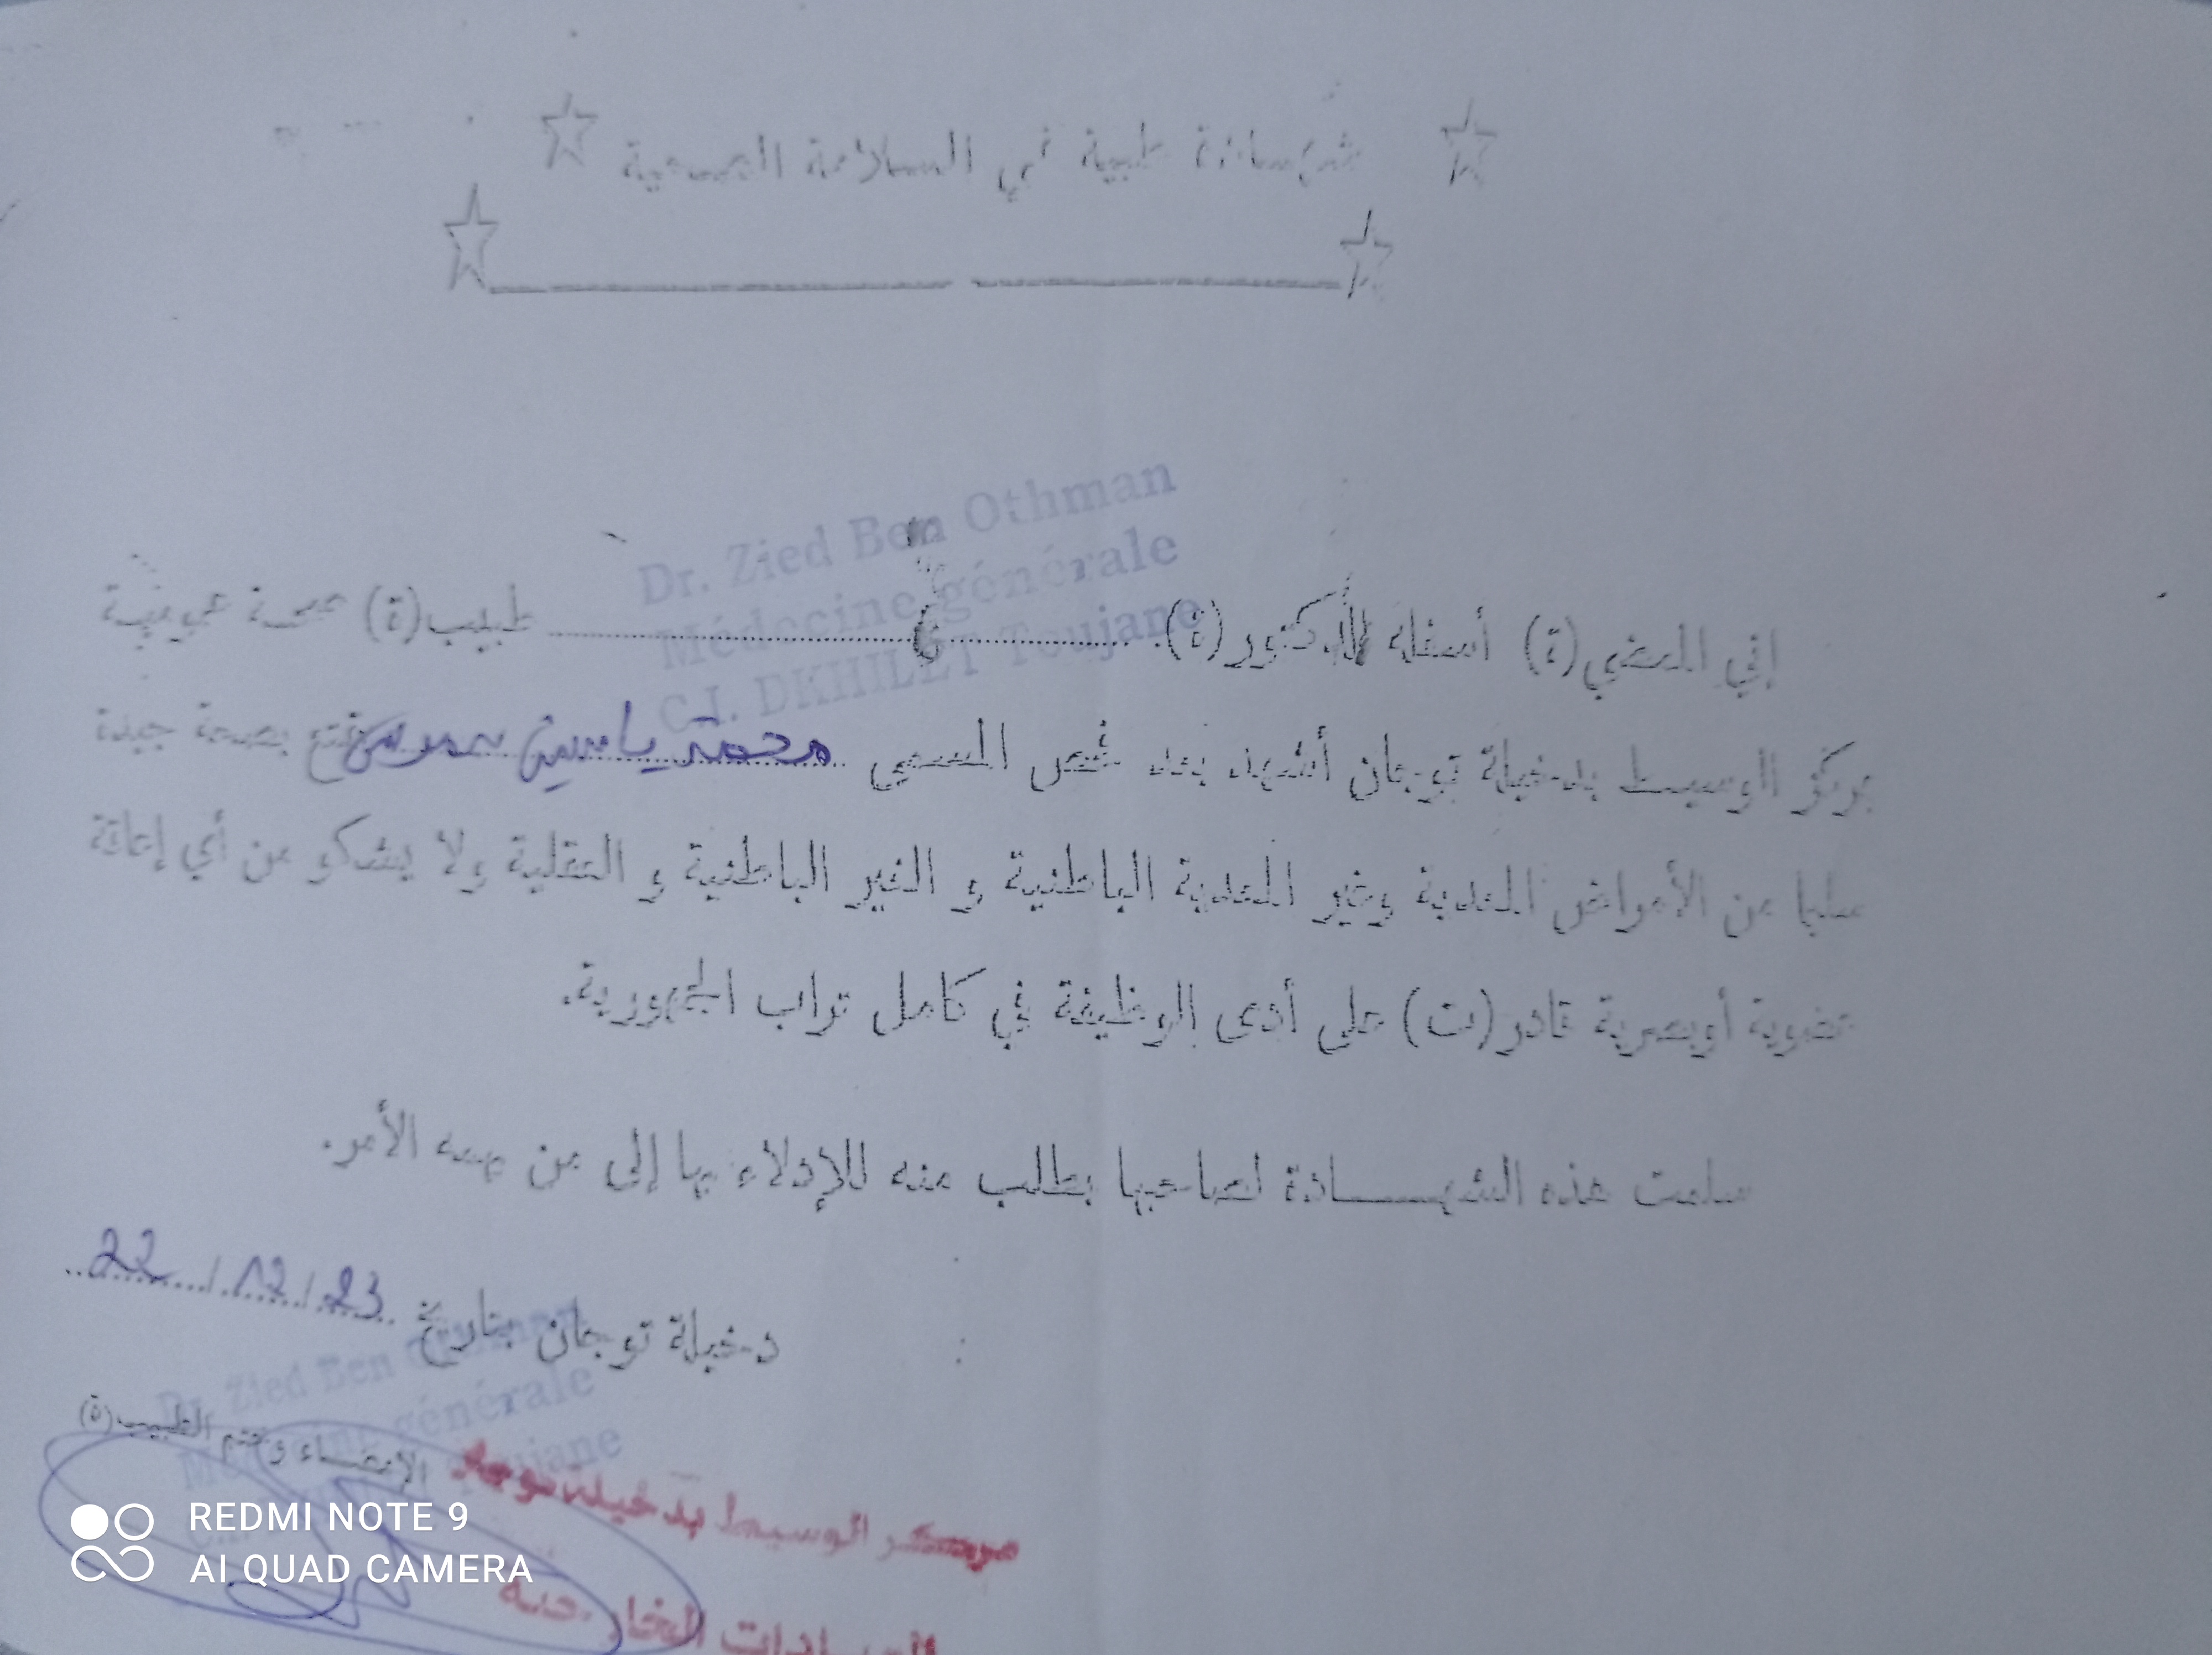 شهادة طبية في السلامة الصحية
Dr. Zied Ben Othman
Médecine générale
C.I. DKHILET Toujane
إني الممضي(ة) أسفله الدكتور(ة) طبيب(ة) صحة عمومية
بمركز الوسيط بدخيلة توجان أشهد بعد فحص المسمى محمد ياسين يتمتع بصحة جيدة
سليما من الأمراض المعدية وغير المعدية الباطنية و الغير الباطنية و العقلية ولا يشكو من أي إعاقة
عضوية أوبصرية قادر(ت) على أدى الوظيفة في كامل تراب الجمهورية.
سلمت هذه الشهـــادة لصاحبها بطلب منه للإدلاء بها إلى من يهمه الأمر.
دخيلة توجان بتاريخ 22/12/23
الإمضاء وختم الطبيب(ة)
Dr. Zied Ben Othman
Médecine générale
Toujane
مركز الوسيط بدخيلة توجان
العيادات الخارجية
REDMI NOTE 9
AI QUAD CAMERA